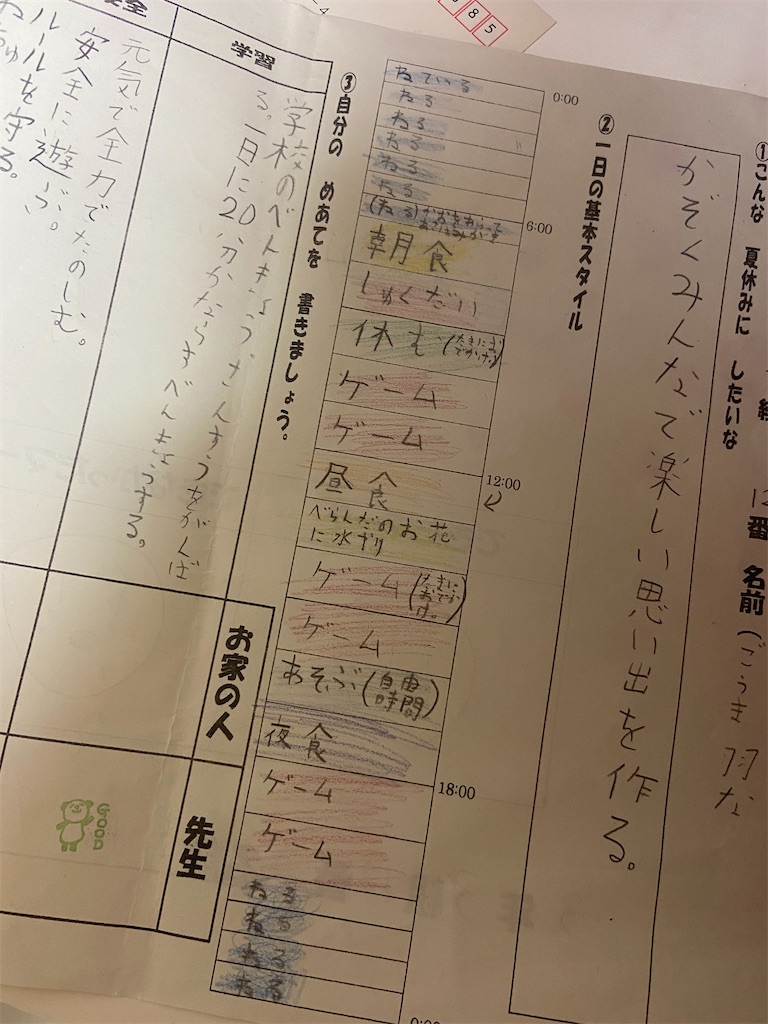 8 5
①こんな 夏休みに したいな
番 名前(ごうき 羽な
かぞくみんなで楽しい思い出を作る。
②一日の基本スタイル
0:00
ねている
ねる
ねる
ねる
ねる
ねる
6:00
朝食
しゅくだい
休む(たまにむ
でかけ)
ゲーム
ゲーム
12:00
昼食
べらんだのお花
に水やり
ゲーム(たまに
おでか
け。)
ゲーム
あそぶ(自由
時間)
夜食
18:00
ゲーム
ゲーム
ねる
ねる
ねる
ねる
0:00
③自分の めあてを 書きましょう。
学習
学校のべんきょうさんすうをがんば
る。一日に20分かならずべんきょうする。
全
元気で全力でたのしむ。
安全に遊ぶ。
ルールを守る。
お家の人
先生
GOOD